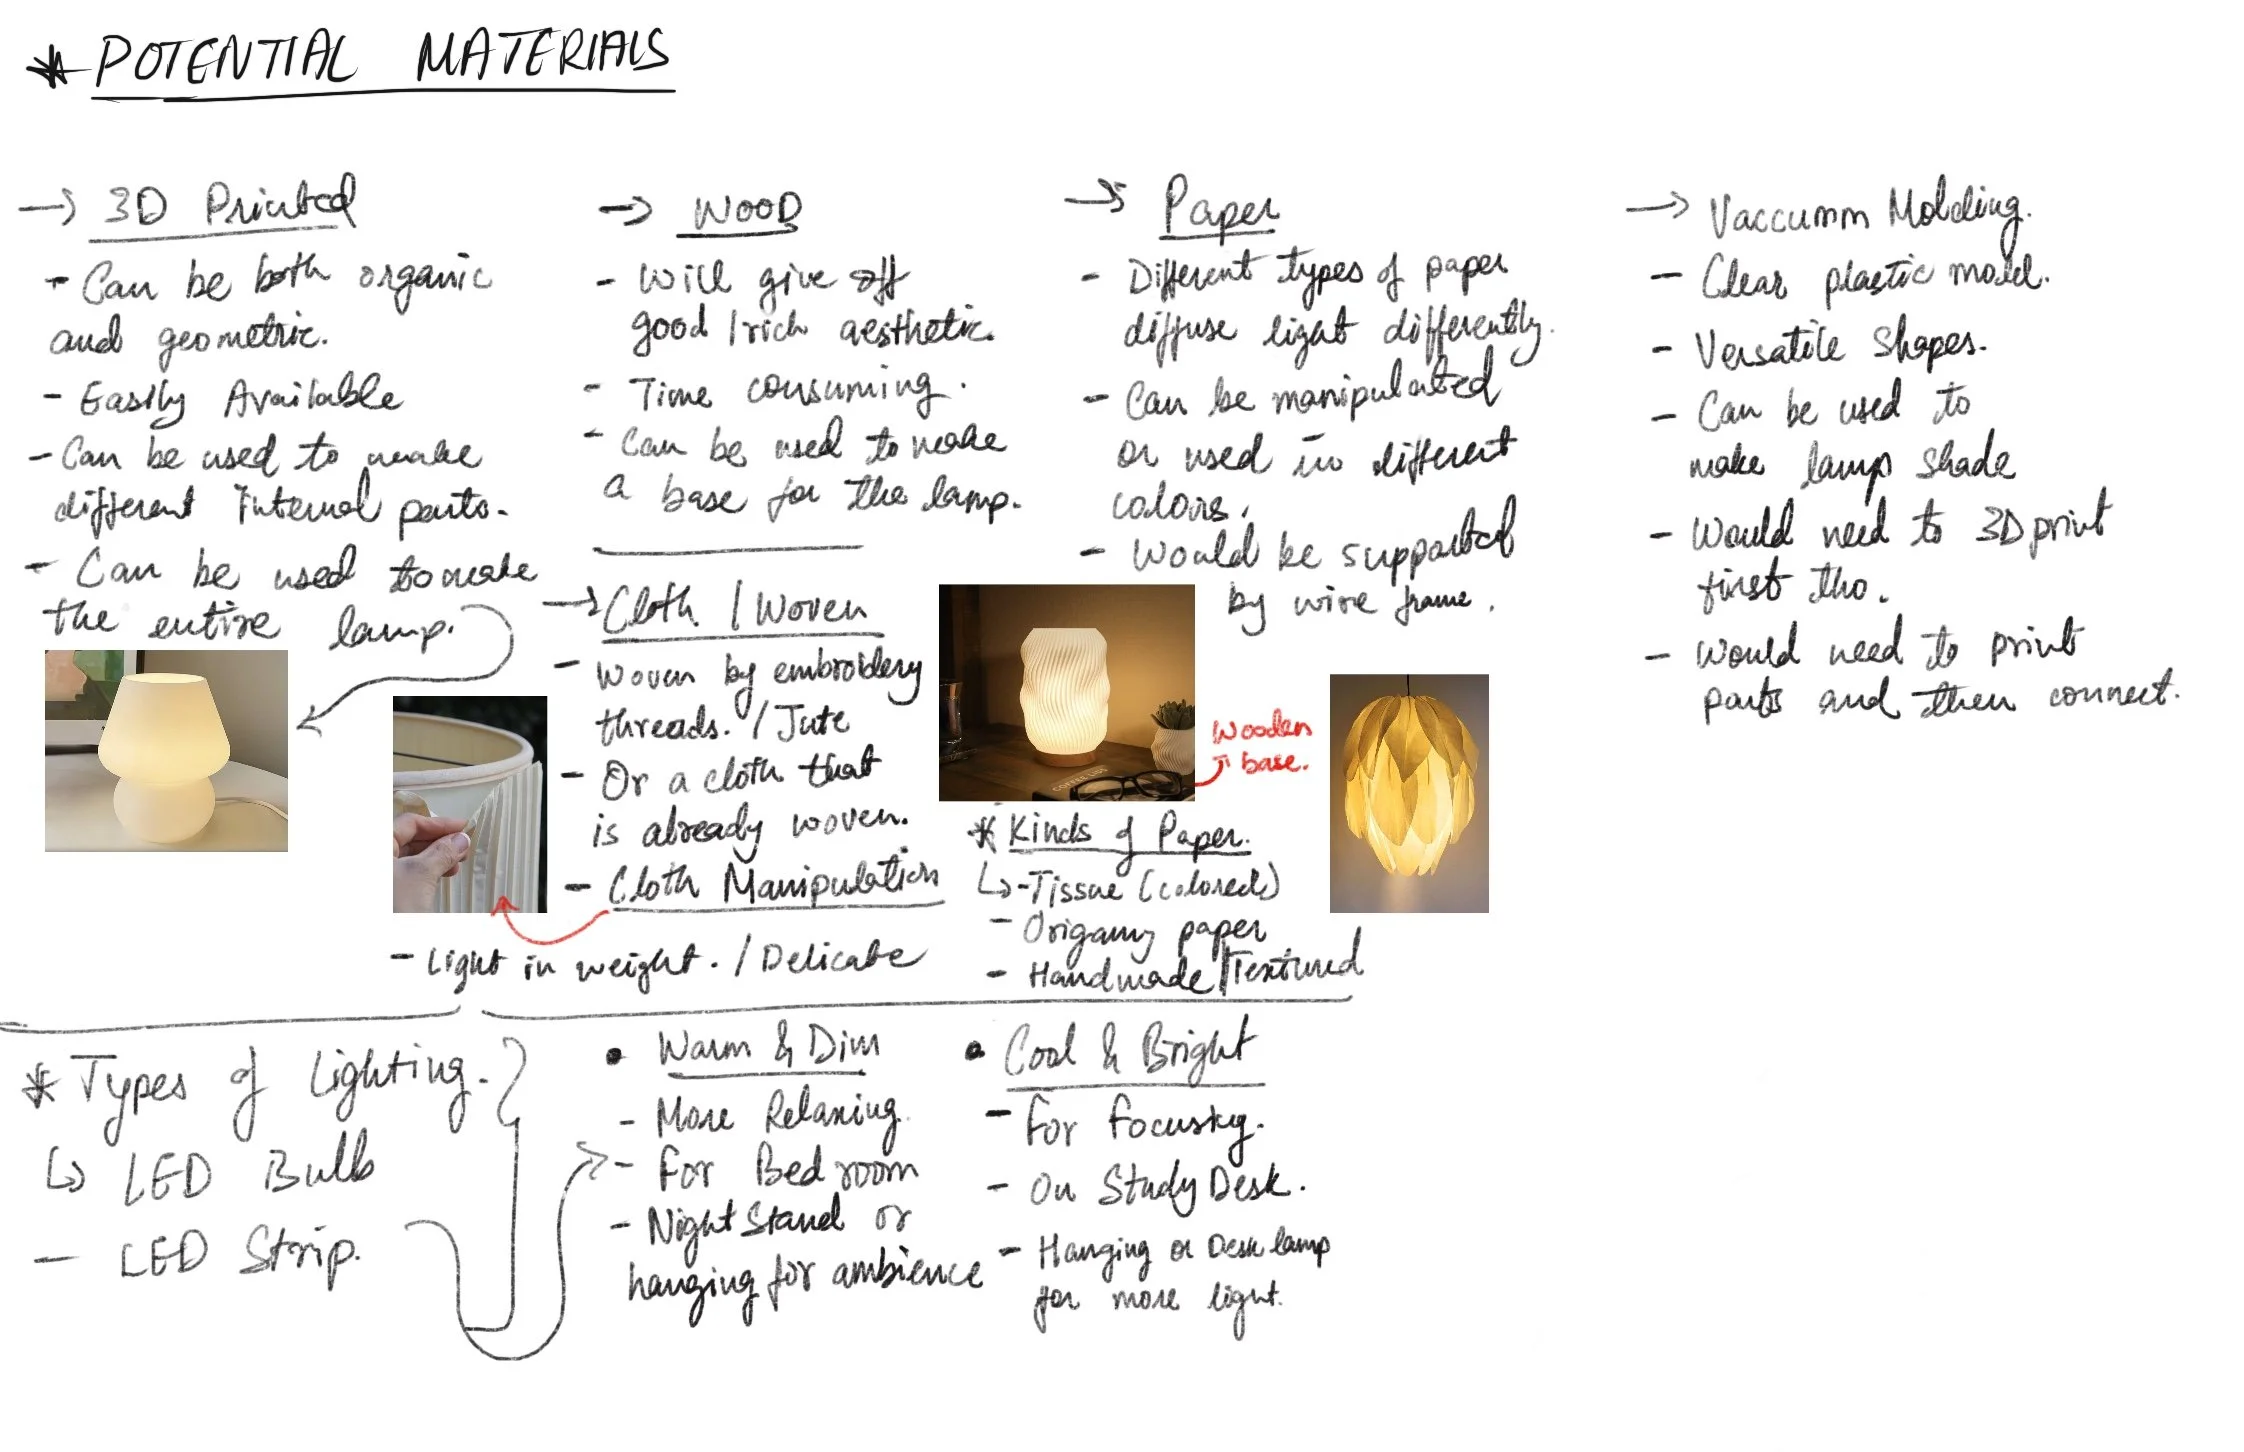 * POTENTIAL MATERIALS
→ 3D Printed
- Can be both organic
and geometric.
- Easily Available
- Can be used to make
different internal parts.
- Can be used to make
the entire lamp.
→ WOOD
- Will give off
good / rich aesthetic.
- Time consuming.
- Can be used to make
a base for the lamp.
→ Cloth / Woven
- Woven by embroidery
threads. / Jute
- Or a cloth that
is already woven.
- Cloth Manipulation
- Light in weight. / Delicate
→ Paper
- Different types of paper
diffuse light differently.
- Can be manipulated
or used in different
colors.
- Would be supported
by wire frame.
Wooden
base.
* Kinds of Paper.
↳ - Tissue (colored)
- Origamy paper
- Handmade / Textured
→ Vaccumm Molding.
- Clear plastic mold.
- Versatile Shapes.
- Can be used to
make lamp shade
- Would need to 3D print
first tho.
- Would need to print
parts and then connect.
* Types of Lighting.
↳ LED Bulb
- LED Strip.
• Warm & Dim
- More Relaxing.
- For Bedroom
- Night Stand or
hanging for ambience
• Cool & Bright
- For
- On Study Desk.
- Hanging or Desk lamp
for more light.